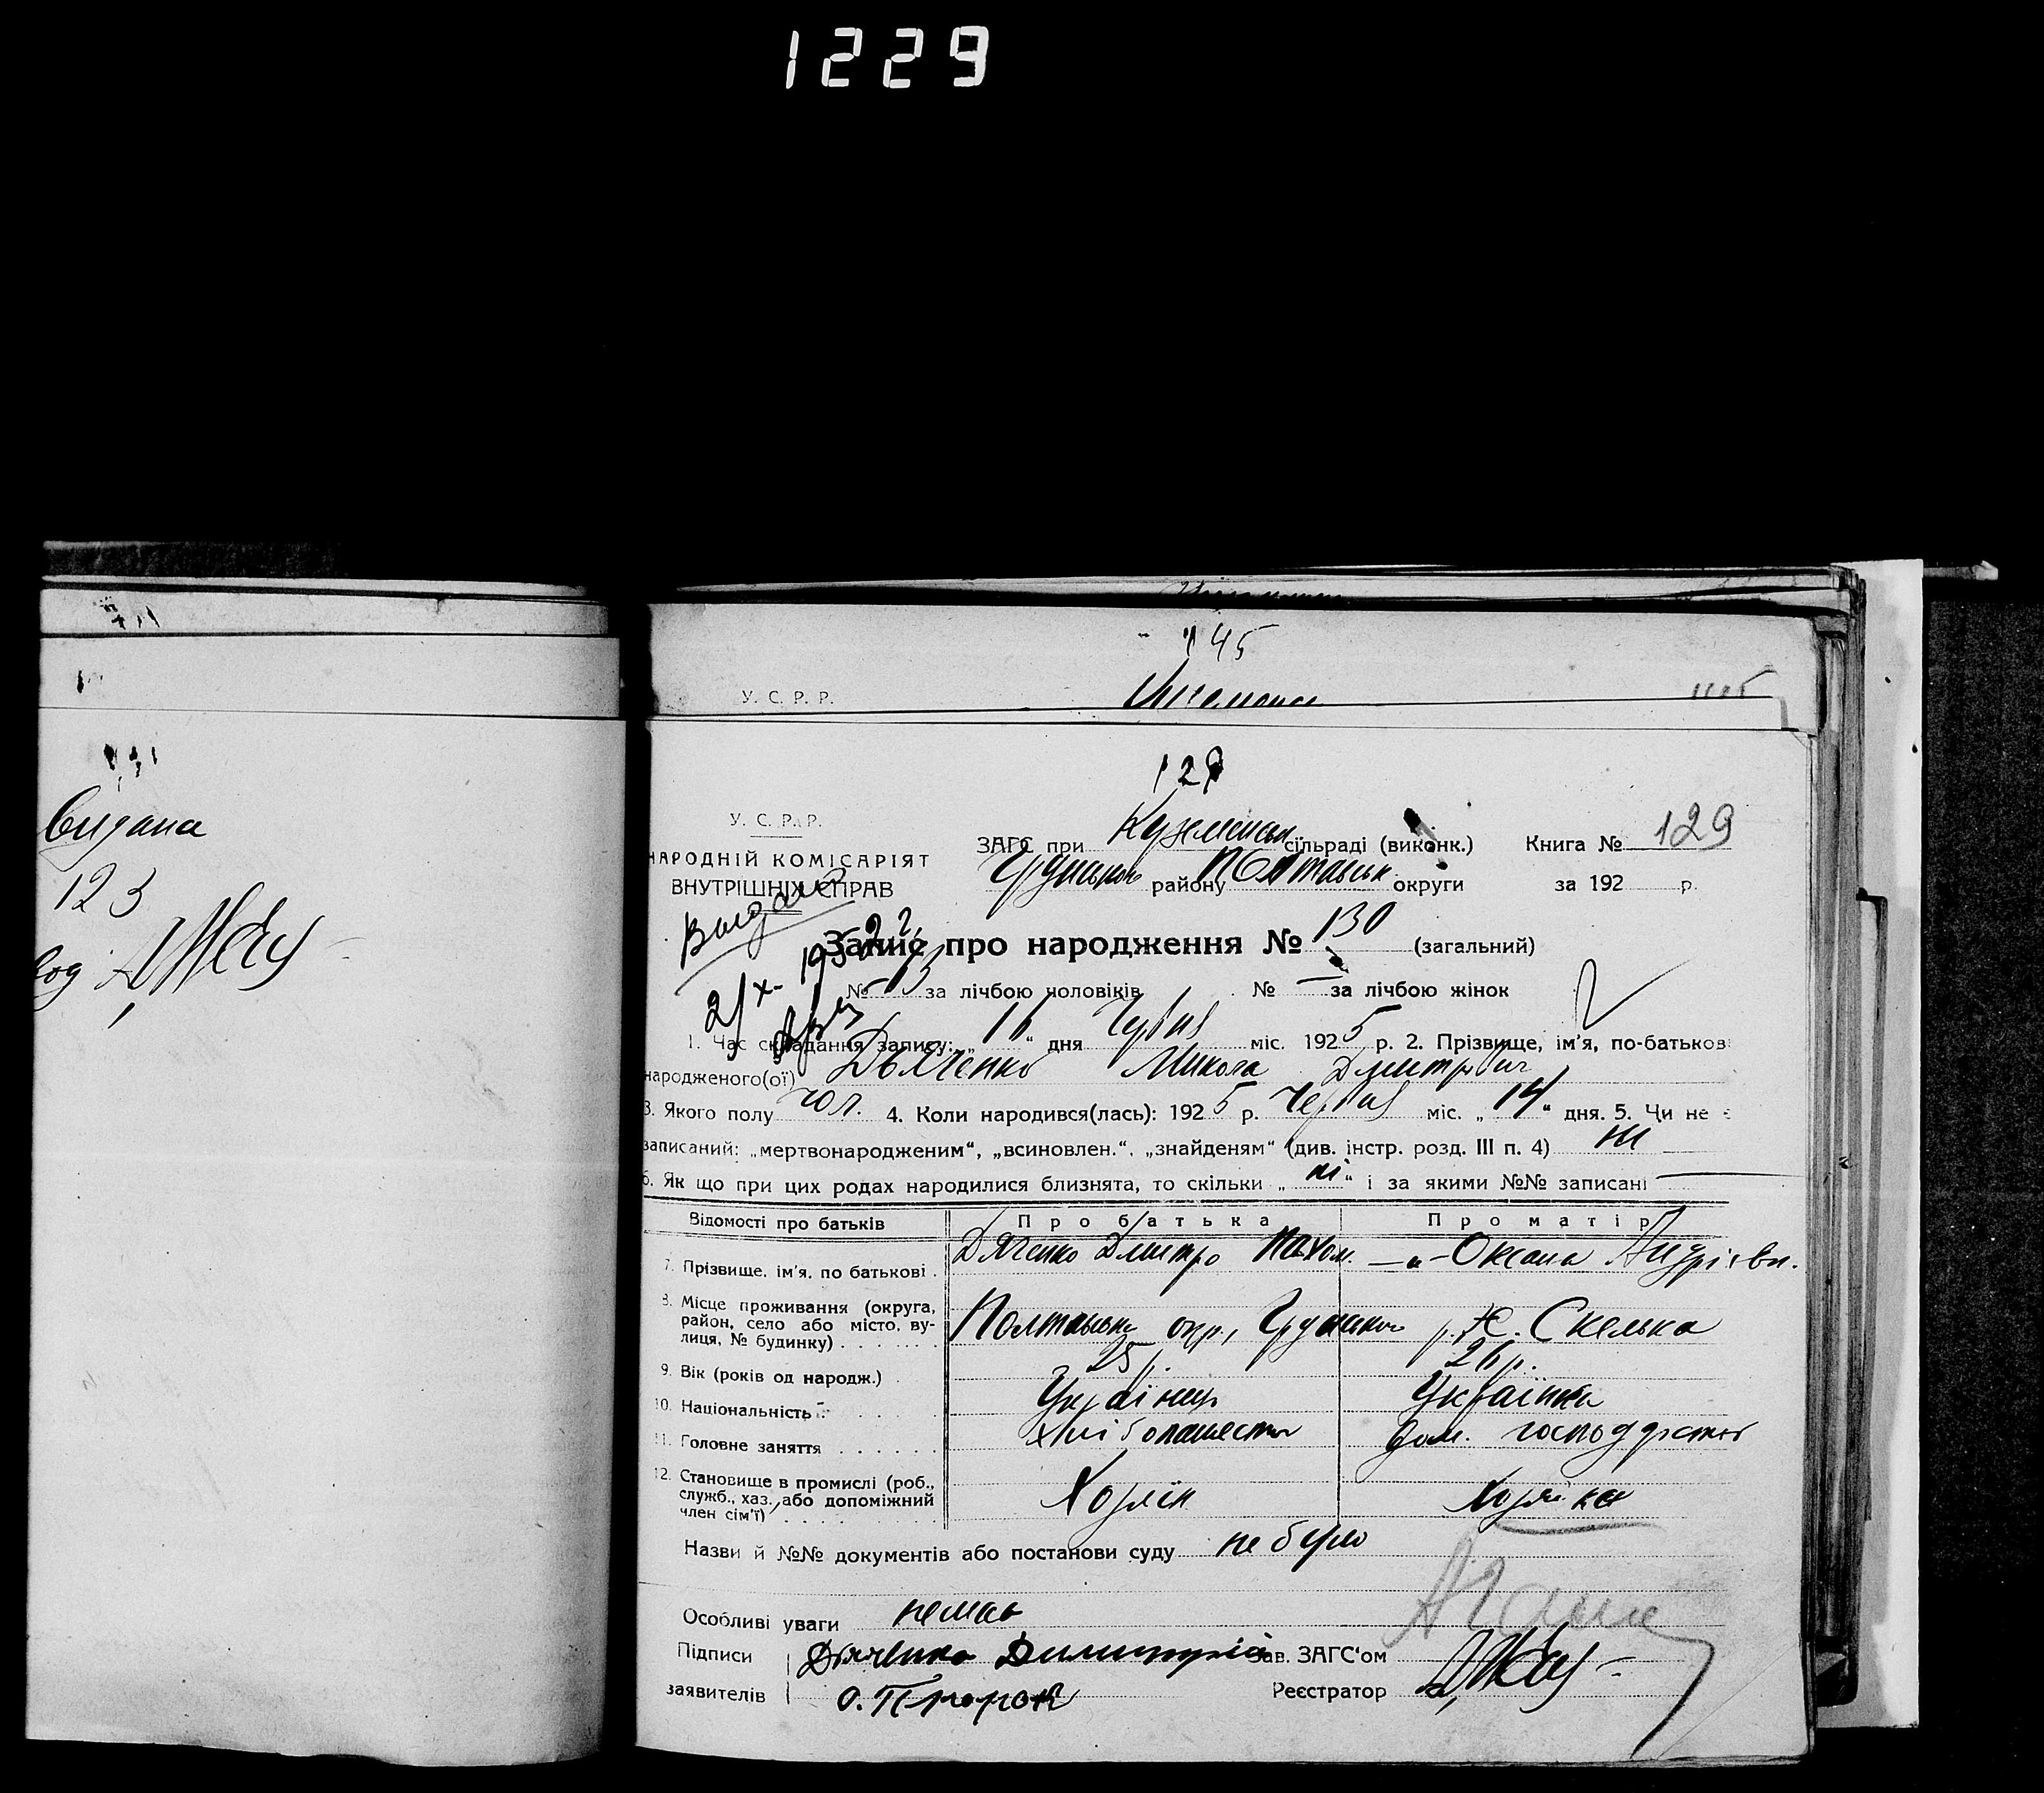 1229
145
У. С. Р. Р.
Видана
123
129
У. С. Р. Р.
НАРОДНІЙ КОМІСАРІЯТ
ВНУТРІШНІХ СПРАВ
ЗАГС при Куземськ. сільраді (виконк.) Книга № 129
Грунського району Полтавськ округи за 192 р.
Выдано
21/X-1952 г.
Запис про народження № 130 (загальний)
№ 73 за лічбою чоловіків № — за лічбою жінок
1. Час складання запису: „16“ дня Червня міс. 1925 р. 2. Прізвище, ім'я, по-батькові
народженого(ої) Дьяченко Микола Дмитрович
3. Якого полу чол. 4. Коли народився(лась): 1925 р. Червня міс. „14“ дня. 5. Чи не є
записаний: „мертвонародженим“, „всиновлен.“, „знайденям“ (див. інстр. розд. III п. 4) ні
6. Як що при цих родах народилися близнята, то скільки „ні“ і за якими №№ записані —
Відомості про батьків Про батька Про матір
7. Прізвище, ім'я, по батькові . Дяченко Дмитро Пахом. —„— Оксана Андрієвн.
8. Місце проживання (округа,
район, село або місто, ву-
лиця, № будинку) . . . . . . . Полтавськ окр., Грунськ р. х. Скелька
9. Вік (років од народж.) . 25 р. 26 р.
10. Національність . . . . . Українець Українка
11. Головне заняття . . . . . . хліборобство дом. господарство
12. Становище в промислі (роб.,
служб., хаз. або допоміжний
член сім'ї) . . . . . . . . . Хозяїн Хозяйка
Назви й №№ документів або постанови суду не було
Особливі уваги немає
Підписи Дьяченко Димитрій Зав. ЗАГС'ом
заявителів Реєстратор